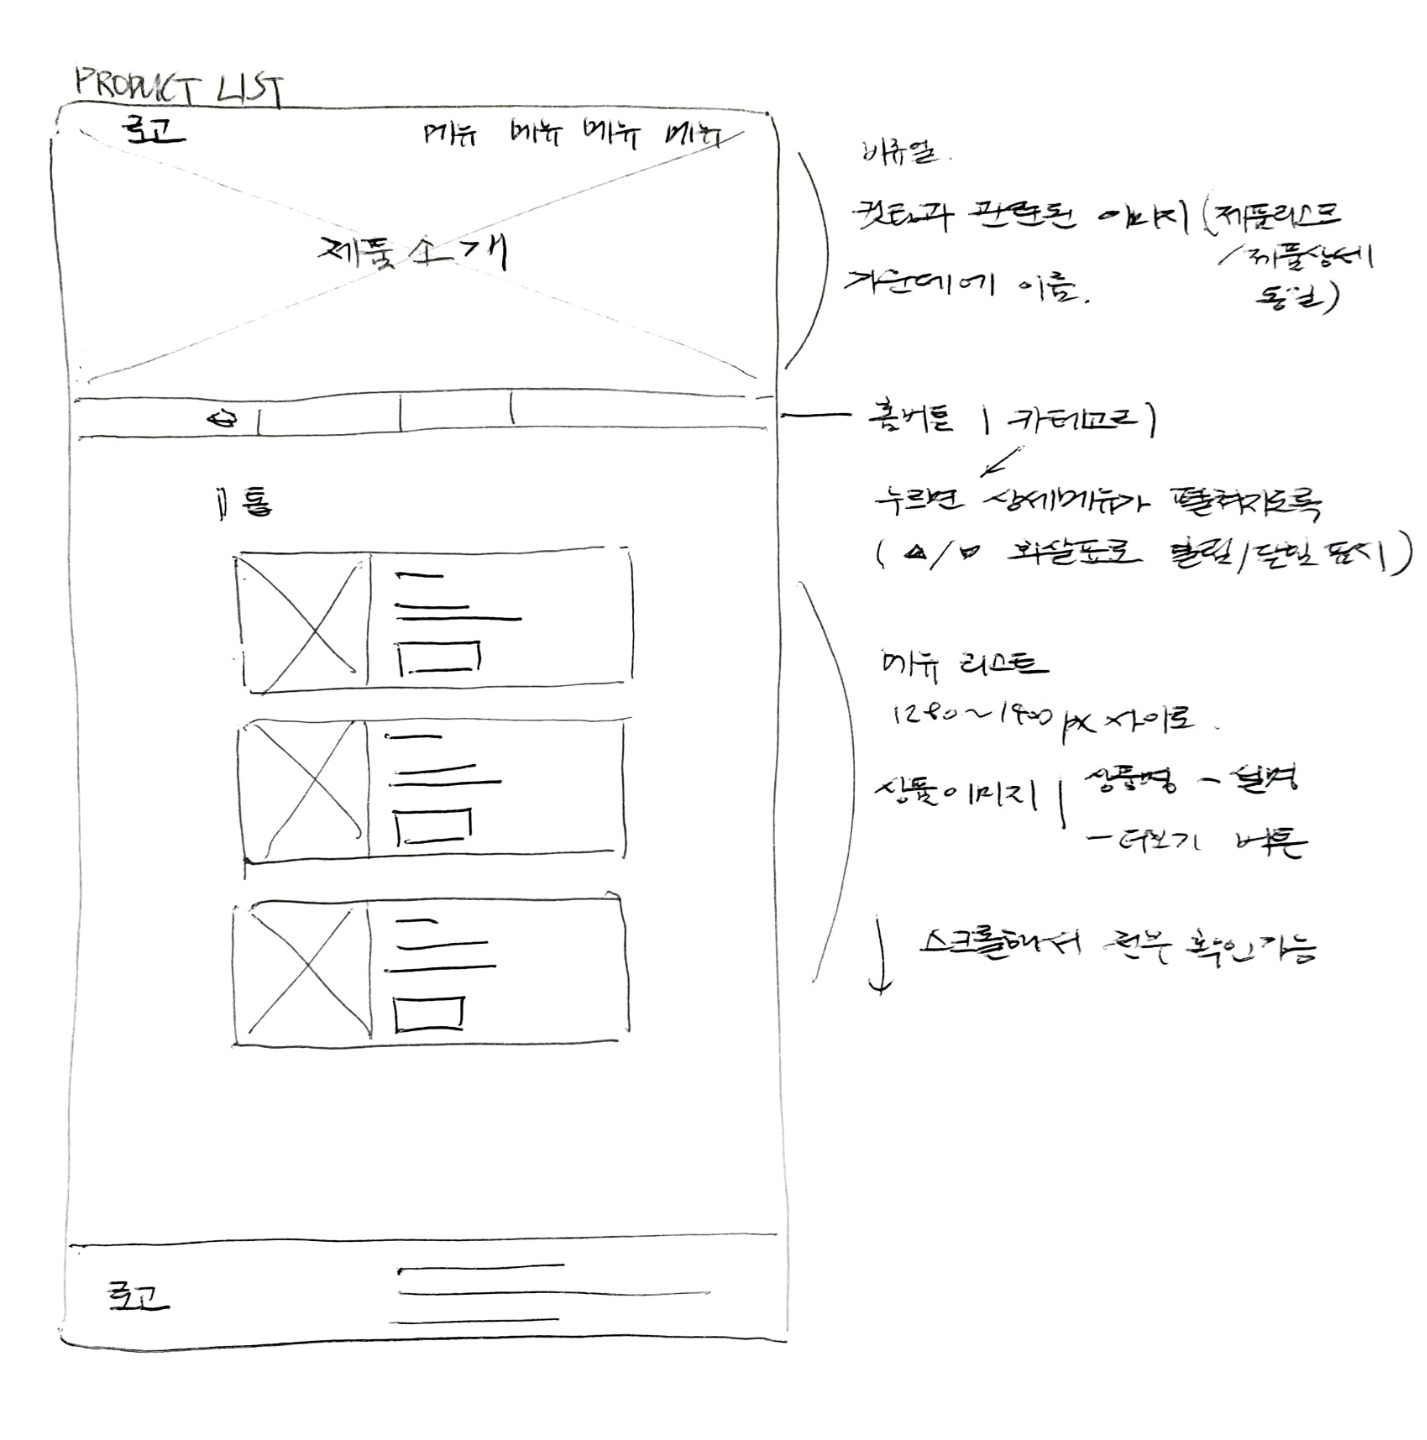 PRODUCT LIST
로고 메뉴 메뉴 메뉴 메뉴
제품소개
비쥬얼.
컷팅과 관련된 이미지 (제품리스트
/제품상세
동일)
가운데에 이름.
홈버튼 | 카테고리
누르면 상세메뉴가 펼쳐지도록
( △/▽ 화살표로 열림/닫힘 표시)
톱
메뉴 리스트
px 사이로.
상품이미지 | 상품명 - 설명
- 더보기 버튼
↓ 스크롤해서 전부 확인가능
로고